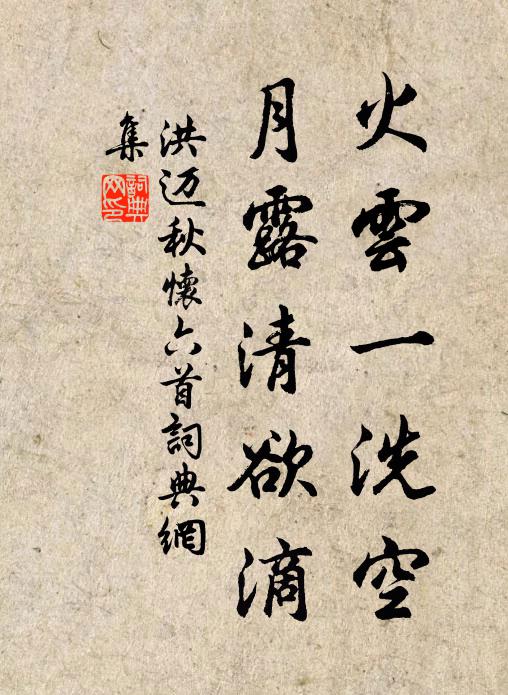 火雲一洗空
月露清欲滴
洪迈秋懷六首詞典網
集
詞典网印